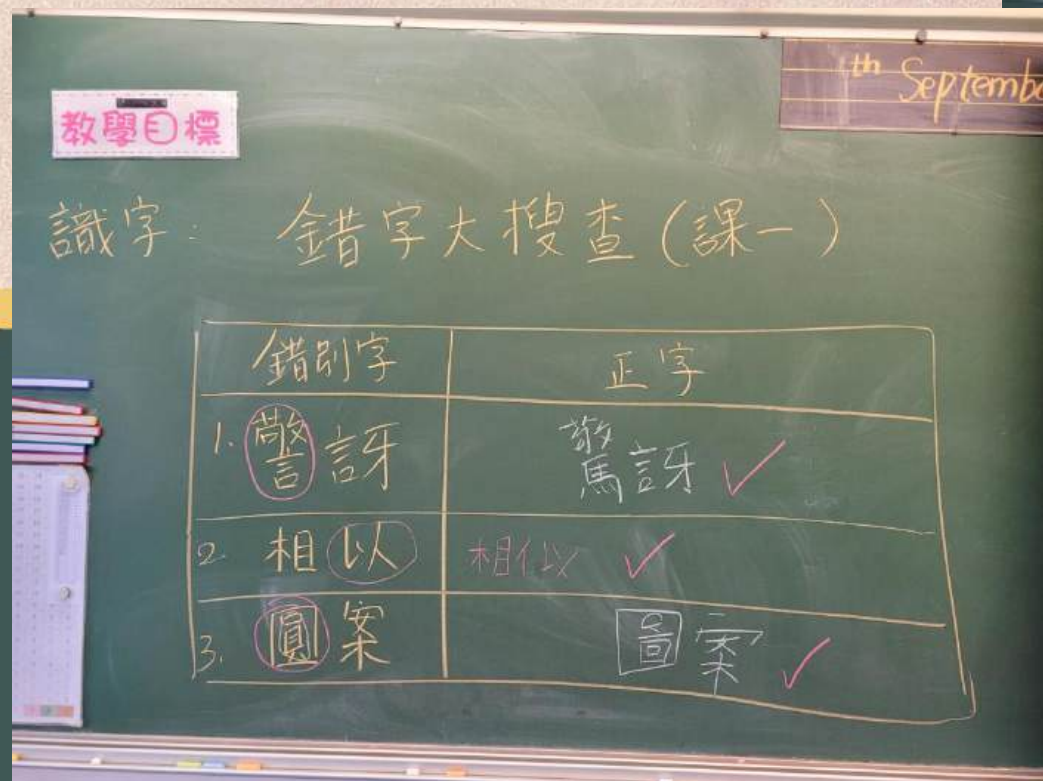 th Septembe
教學目標
識字： 錯字大搜查（課一）
錯別字 正字
1. 警訝 驚訝 ✓
2. 相以 相似 ✓
3. 圓案 圖案 ✓